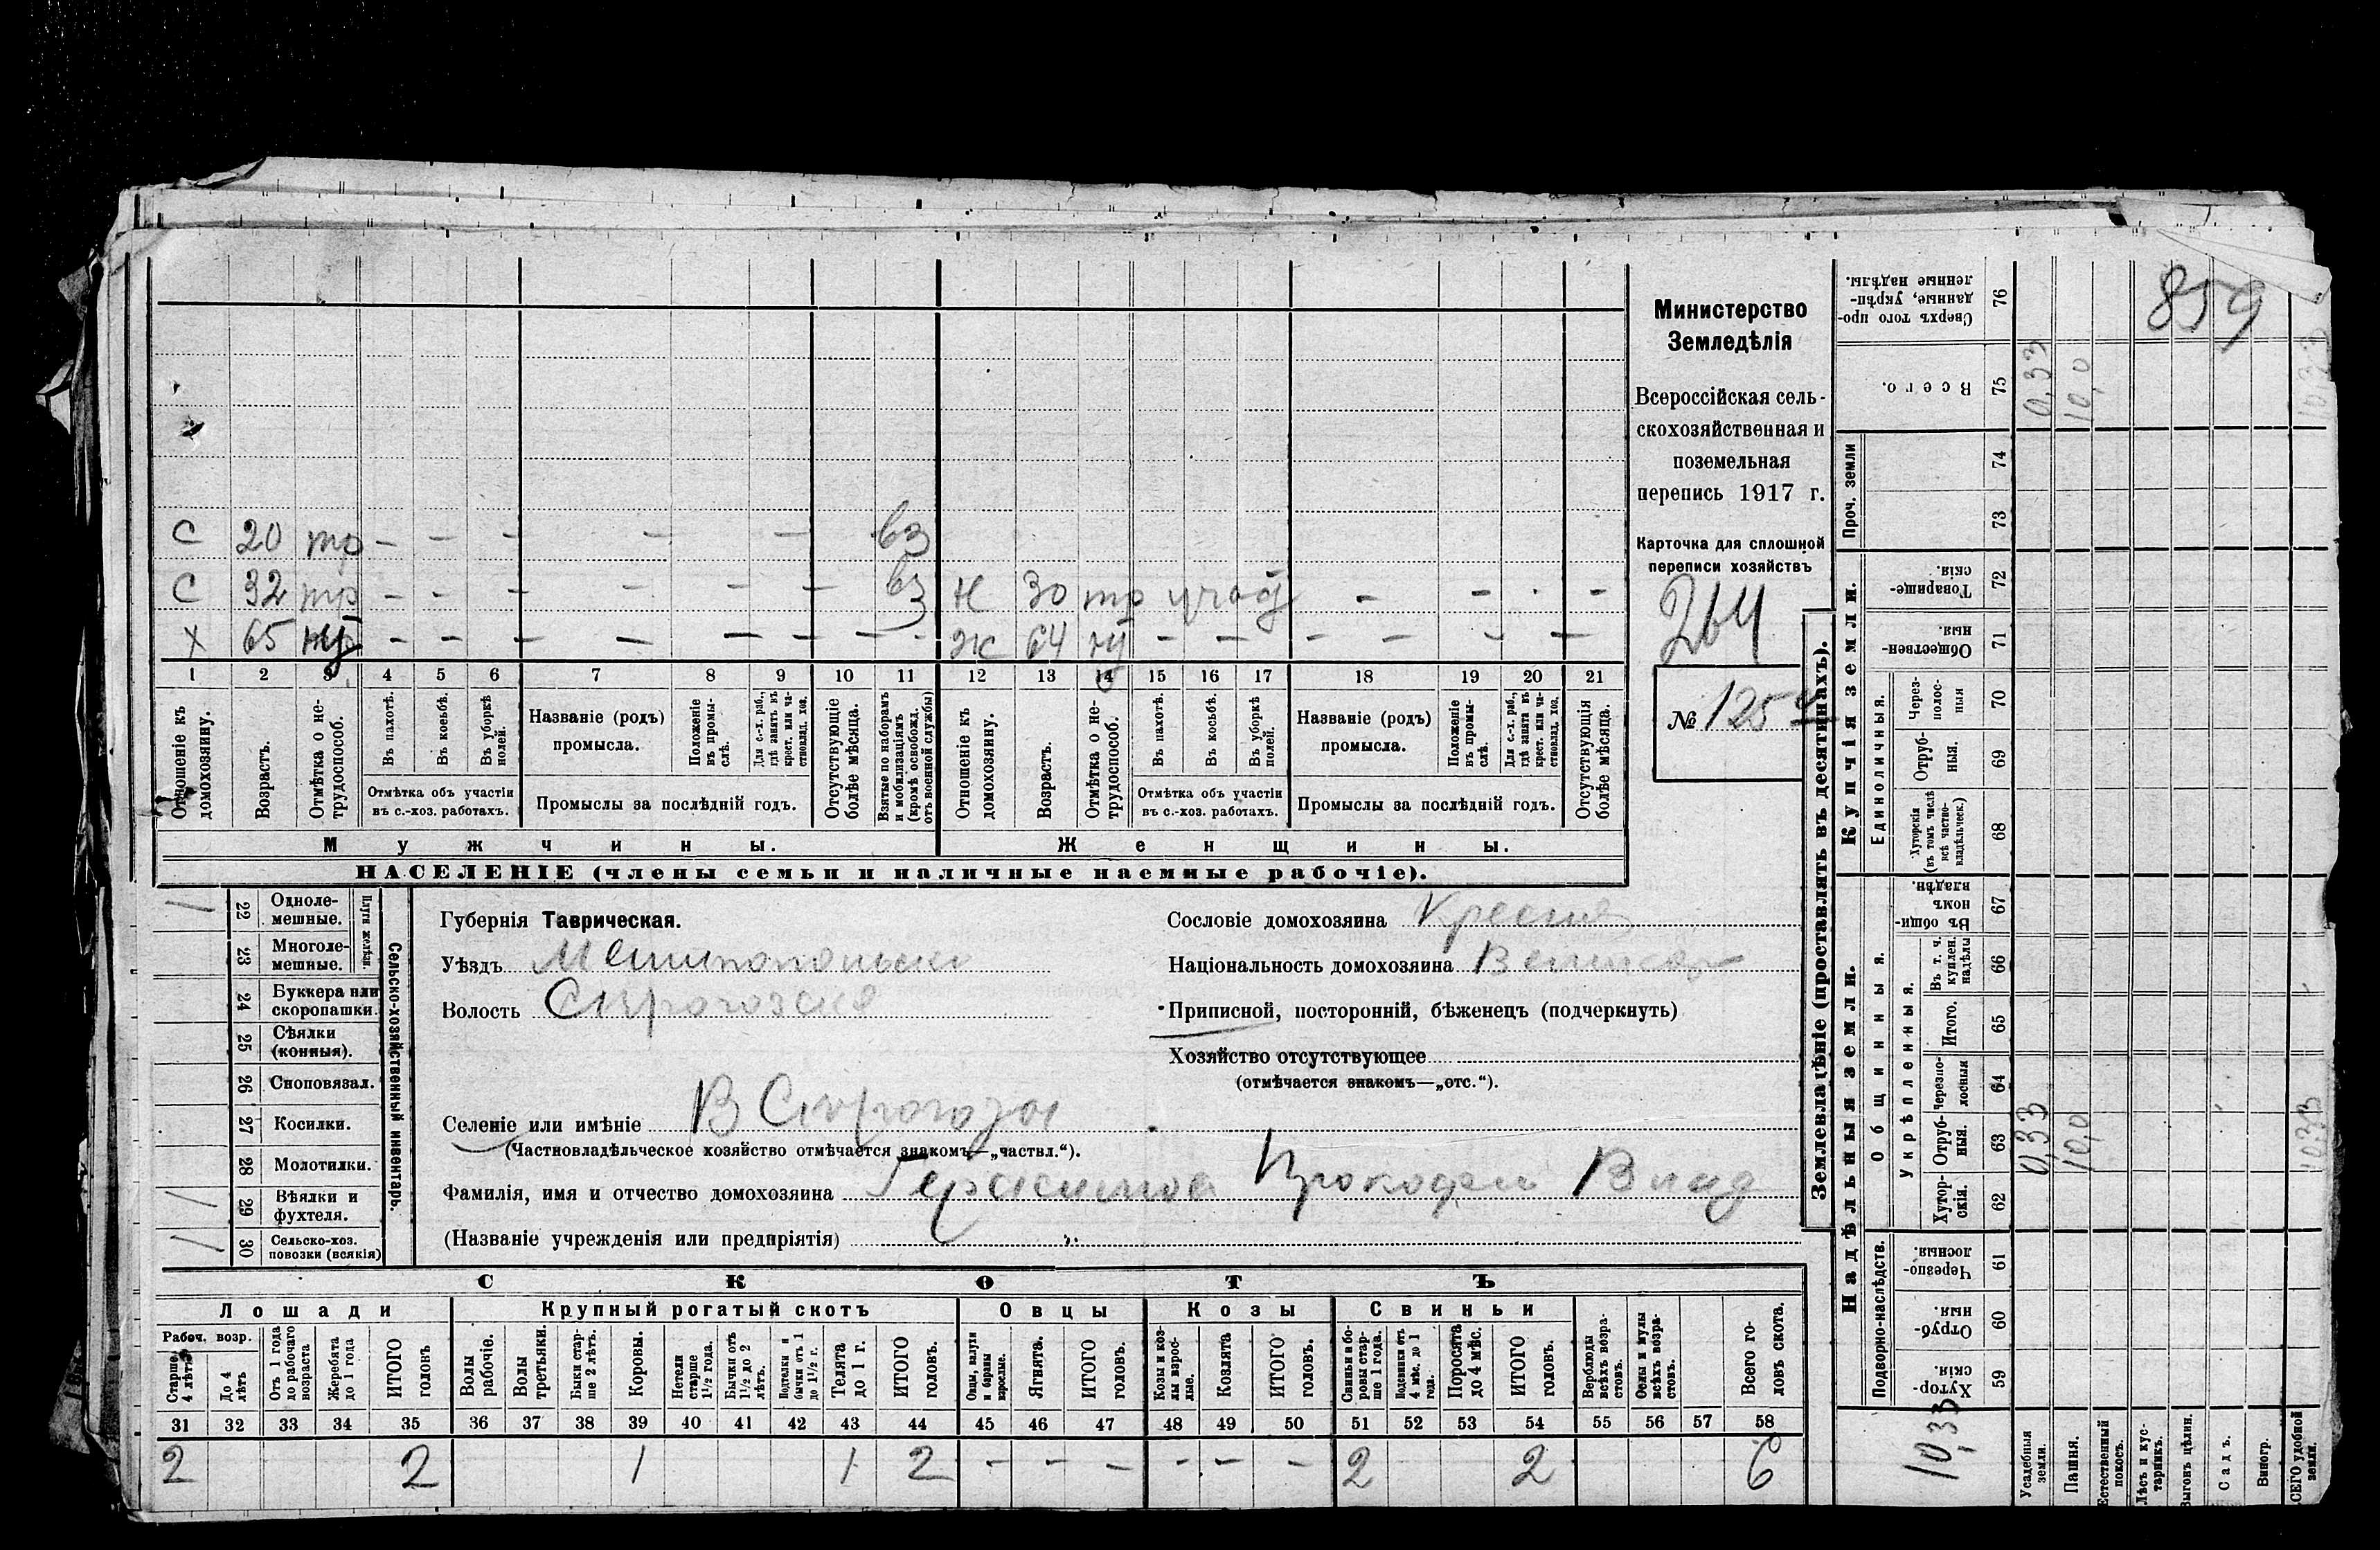 859
Министерство
Земледѣлія
Всероссійская сель-
скохозяйственная и
поземельная
перепись 1917 г.
Карточка для сплошной
переписи хозяйствъ
264
№ 125
С 20 тр – – – – – – вз
С 32 тр – – – – – – вз Н 30 тр – – – –
Х 65 – – – – – – – – ж 64 – – – – – –
1 2 3 4 5 6 7 8 9 10 11 12 13 14 15 16 17 18 19 20 21
Отношеніе къ домохозяину.
Возрастъ.
Отмѣтка о не-трудоспособ.
Въ пахотѣ.
Въ косьбѣ.
Въ уборкѣ полей.
Отмѣтка объ участіи
въ с.-хоз. работахъ.
Названіе (родъ)
промысла.
Положеніе въ промы-слѣ.
Для с.-х. раб., гдѣ занятъ въ крест. или ча-стновлад. хоз.
Промыслы за послѣдній годъ.
Отсутствующіе болѣе мѣсяца.
Взятые по наборамъ и мобилизаціямъ (кромѣ освобожд. отъ военной службы)
Отношеніе къ домохозяину.
Возрастъ.
Отмѣтка о не-трудоспособ.
Въ пахотѣ.
Въ косьбѣ.
Въ уборкѣ полей.
Отмѣтка объ участіи
въ с.-хоз. работахъ.
Названіе (родъ)
промысла.
Положеніе въ промы-слѣ.
Для с.-х. раб., гдѣ занята въ крест. или ча-стновлад. хоз.
Промыслы за послѣдній годъ.
Отсутствующія болѣе мѣсяца.
Мужчины. Женщины.
НАСЕЛЕНІЕ (члены семьи и наличные наемные рабочіе).
Сельско-хозяйственный инвентарь.
Плуги желѣзн.
/ 22 Однолемешные.
23 Многолемешные.
24 Буккера или скоропашки.
25 Сѣялки (конныя).
26 Сноповязал.
27 Косилки.
28 Молотилки.
/ 29 Вѣялки и фухтеля.
/ 30 Сельско-хоз. повозки (всякія)
Губернія Таврическая.
Уѣздъ Мелитопольск
Волость
Селеніе или имѣніе В Сирогозы
(Частновладѣльческое хозяйство отмѣчается знакомъ—„частвл.“).
Фамилія, имя и отчество домохозяина Герасимов Прокофи Влад
(Названіе учрежденія или предпріятія)
Сословіе домохозяина Крестя
Національность домохозяина Великор
Приписной, посторонній, бѣженецъ (подчеркнуть)
Хозяйство отсутствующее
(отмѣчается знакомъ—„отс.“).
СКОТЪ
Лошади Крупный рогатый скотъ Овцы Козы Свиньи
Рабоч. возр.
Старше 4 лѣтъ
До 4 лѣтъ
Отъ 1 года до рабочаго возраста
Жеребята до 1 года
ИТОГО головъ
Волы рабочіе.
Волы третьяки.
Быки стар-ше 2 лѣтъ.
Коровы.
Нетели старше 1½ года.
Бычки отъ 1½ до 2 лѣтъ.
Подтелки и бычки отъ 1 до 1½ г.
Телята до 1 г.
ИТОГО головъ.
Овцы, валухи и бараны взрослые.
Ягнята.
ИТОГО головъ.
Козы и коз-лы взрос-лые.
Козлята
ИТОГО головъ.
Свиньи и бо-ровы стар-ше 1 года.
Подсвинки отъ 4 мѣс. до 1 года.
Поросята до 4 мѣс.
ИТОГО головъ.
Верблюды всѣхъ возра-стовъ.
Ослы и мулы всѣхъ возра-стовъ.
Всего го-ловъ скота.
31 32 33 34 35 36 37 38 39 40 41 42 43 44 45 46 47 48 49 50 51 52 53 54 55 56 57 58
2 2 1 1 2 – – – – – – 2 2 6
Землевладѣніе (проставлять въ десятинахъ).
Купчія земли.
Надѣльныя земли.
Проч. земли
Единоличныя.
Общинныя.
Укрѣпленныя.
Подворно-наслѣдств.
76 Сверхъ того про-данные, укрѣп-ленные надѣлы.
75 Всего. 0,33 10,0 10,33
74
73
72 Товарище-скія.
71 Обществен-ныя.
70 Через-полос-ныя
69 Отруб-ныя.
68 Хуторскія (въ томъ числѣ всѣ частно-владѣльческ.)
67 Въ общи-номъ владѣн.
66 Въ т. ч. куплен. надѣлы
65 Итого.
64 Черезпо-лосныя
63 Отруб-ныя. 0,33 10,0 10,33
62 Хутор-скія.
61 Черезпо-лосныя.
60 Отруб-ныя.
59 Хутор-скія.
10,33
Усадебныя земли.
Пашня.
Естественный покосъ.
Лѣсъ и кус-тарникъ.
Выгонъ цѣлин.
Садъ.
Виногр.
ВСЕГО удобной земли.